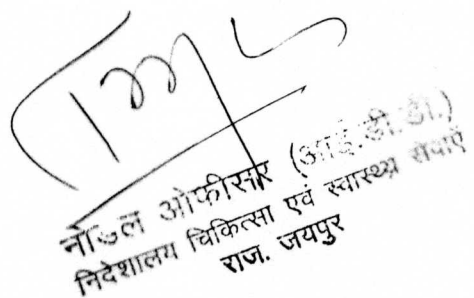 नोडल ओफीसर (आई.डी.डी.)
निदेशालय चिकित्सा एवं स्वास्थ्य सेवाएँ
राज. जयपुर